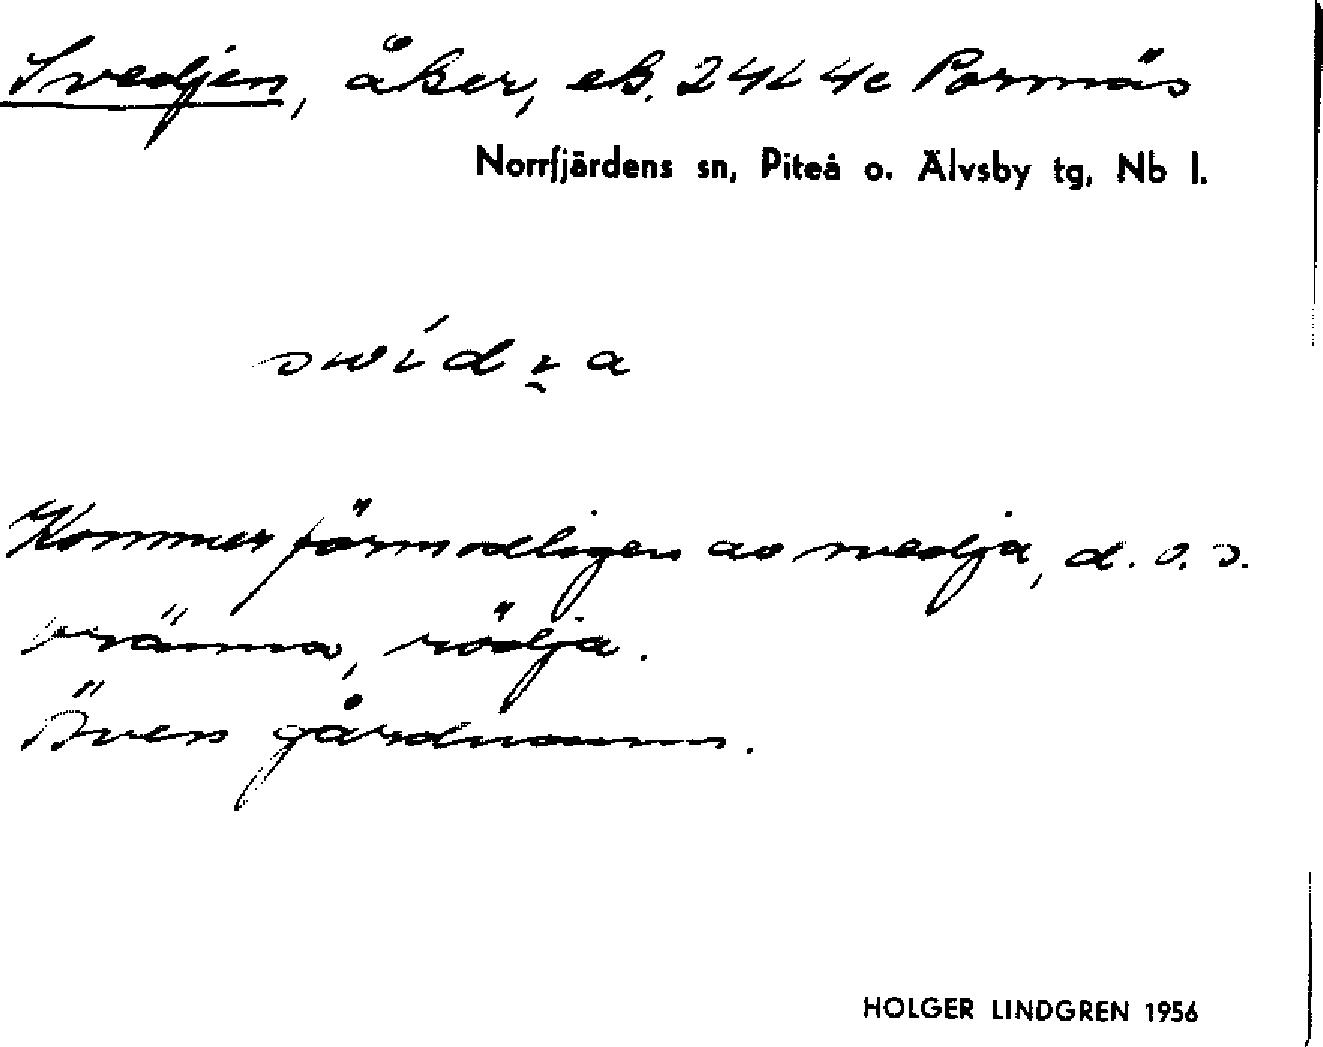 Svedjen, åker, ek. 24L4c Pormäs
Norrfjärdens sn, Piteå o. Älvsby tg, Nb l.
Kommer förmodligen av svedja, d.v.s.
bränna, rödja.
Även gårdnamn.
HOLGER LINDGREN 1956